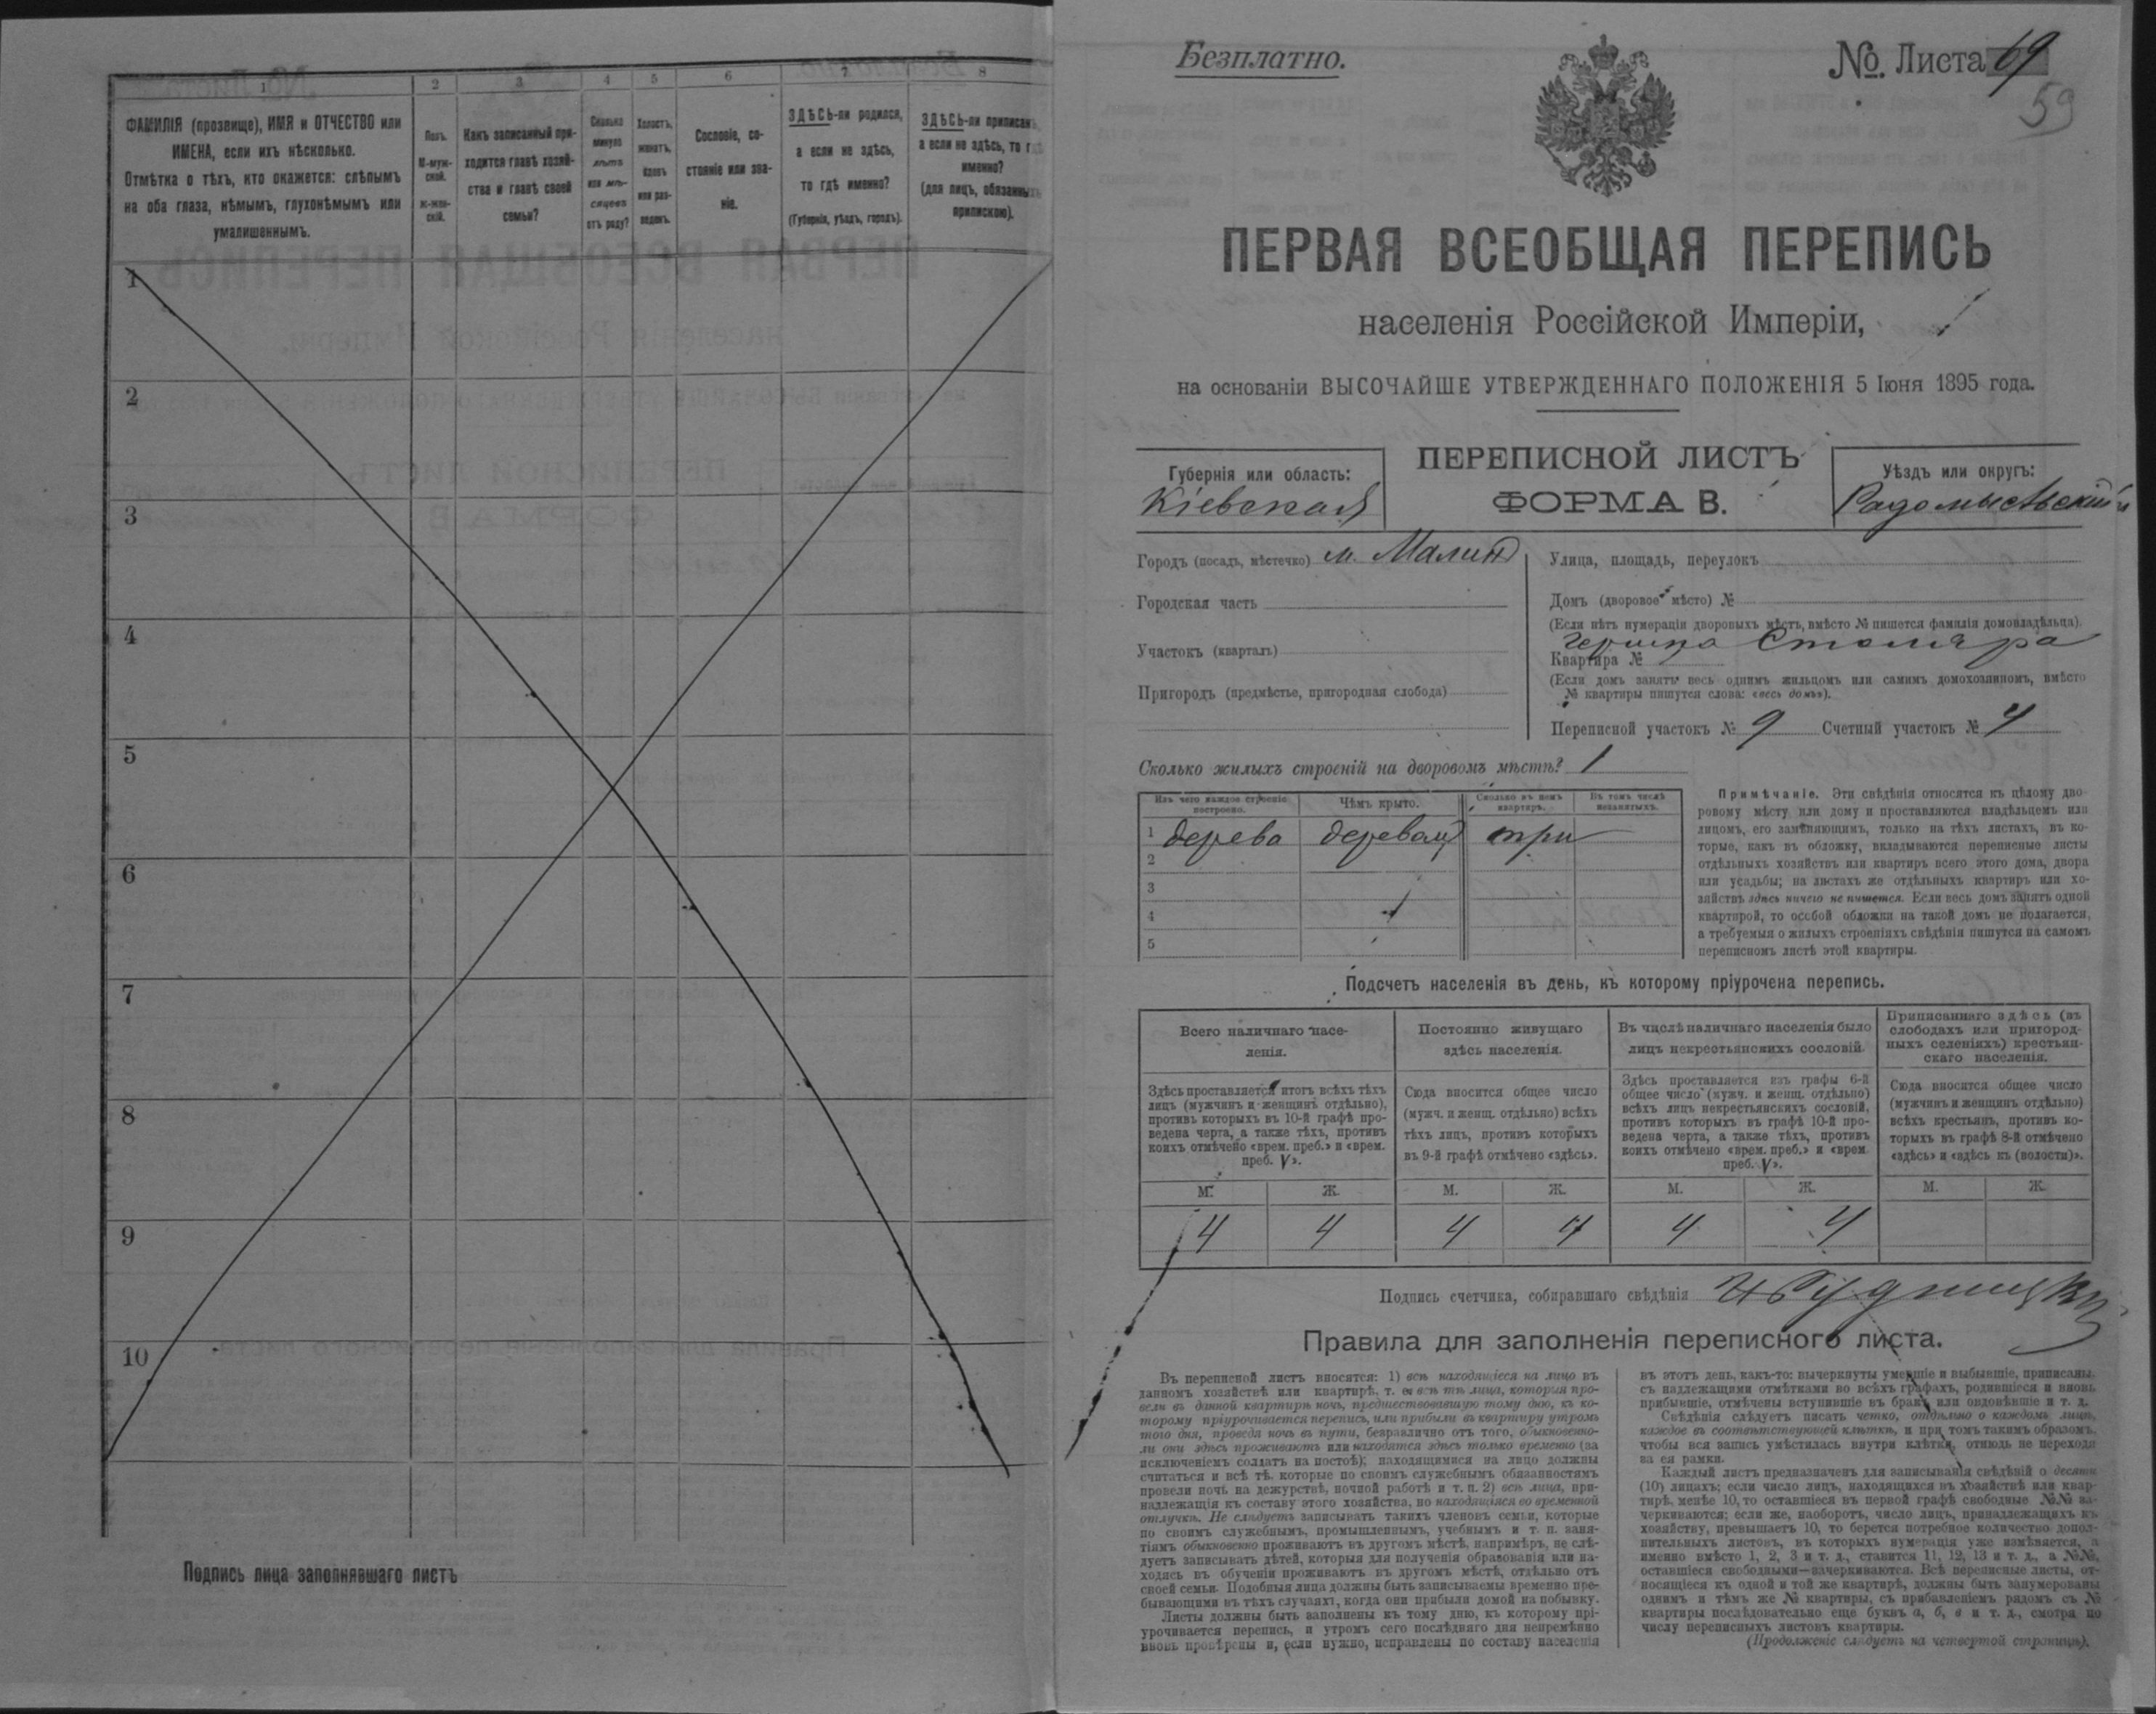 1 2 3 4 5 6 7 8
ФАМИЛІЯ (прозвище), ИМЯ и ОТЧЕСТВО или
ИМЕНА, если ихъ нѣсколько.
Отмѣтка о тѣхъ, кто окажется: слѣпымъ
на оба глаза, нѣмымъ, глухонѣмымъ или
умалишеннымъ.
Полъ.
М-муж-
ской.
ж-жен-
скій.
Какъ записанный при-
ходится главѣ хозяй-
ства и главѣ своей
семьи?
Сколько
минуло
лѣтъ
или мѣ-
сяцевъ
отъ роду?
Холостъ,
женатъ,
вдовъ
или раз-
веденъ.
Сословіе, со-
стояніе или зва-
ніе.
ЗДѢСЬ-ли родился,
а если не здѣсь,
то гдѣ именно?
(Губернія, уѣздъ, городъ).
ЗДѢСЬ-ли приписанъ,
а если не здѣсь, то гдѣ
именно?
(для лицъ, обязанныхъ
припискою).
1
2
3
4
5
6
7
8
9
10
Подпись лица заполнявшаго листъ
Безплатно.
№. Листа 69
59
ПЕРВАЯ ВСЕОБЩАЯ ПЕРЕПИСЬ
населенія Россійской Имперіи,
на основаніи ВЫСОЧАЙШЕ УТВЕРЖДЕННАГО ПОЛОЖЕНІЯ 5 Іюня 1895 года.
Губернія или область:
Кіевская
ПЕРЕПИСНОЙ ЛИСТЪ
ФОРМА В.
Уѣздъ или округъ:
Радомысльскій
Городъ (посадъ, мѣстечко) м. Малинъ
Городская часть
Участокъ (кварталъ)
Пригородъ (предмѣстье, пригородная слобода)
Улица, площадь, переулокъ
Домъ (дворовое мѣсто) №
(Если нѣтъ нумераціи дворовыхъ мѣстъ, вмѣсто № пишется фамилія домовладѣльца).
Столяра
Квартира №
(Если домъ занятъ весь однимъ жильцомъ или самимъ домохозяиномъ, вмѣсто
№ квартиры пишутся слова: «весь домъ»).
Переписной участокъ № 9 Счетный участокъ № 4
Сколько жилыхъ строеній на дворовомъ мѣстѣ? 1
Изъ чего каждое строеніе
построено.
Чѣмъ крыто.
Сколько въ немъ
квартиръ.
Въ томъ числѣ
незанятыхъ.
1 дерева деревомъ три
2
3
4
5
Примѣчаніе. Эти свѣдѣнія относятся къ цѣлому дво-
ровому мѣсту или дому и проставляются владѣльцемъ или
лицомъ, его замѣняющимъ, только на тѣхъ листахъ, въ ко-
торые, какъ въ обложку, вкладываются переписные листы
отдѣльныхъ хозяйствъ или квартиръ всего этого дома, двора
или усадьбы; на листахъ же отдѣльныхъ квартиръ или хо-
зяйствъ здѣсь ничего не пишется. Если весь домъ занятъ одной
квартирой, то особой обложки на такой домъ не полагается,
а требуемыя о жилыхъ строеніяхъ свѣдѣнія пишутся на самомъ
переписномъ листѣ этой квартиры.
Подсчетъ населенія въ день, къ которому пріурочена перепись.
Всего наличнаго насе-
ленія.
Постоянно живущаго
здѣсь населенія.
Въ числѣ наличнаго населенія было
лицъ некрестьянскихъ сословій.
Приписаннаго здѣсь (въ
слободахъ или пригород-
ныхъ селеніяхъ) крестьян-
скаго населенія.
Здѣсь проставляется итогъ всѣхъ тѣхъ
лицъ (мужчинъ и женщинъ отдѣльно),
противъ которыхъ въ 10-й графѣ про-
ведена черта, а также тѣхъ, противъ
коихъ отмѣчено «врем. преб.» и «врем.
преб. V».
Сюда вносится общее число
(мужч. и женщ. отдѣльно) всѣхъ
тѣхъ лицъ, противъ которыхъ
въ 9-й графѣ отмѣчено «здѣсь».
Здѣсь проставляется изъ графы 6-й
общее число (мужч. и женщ. отдѣльно)
всѣхъ лицъ некрестьянскихъ сословій,
противъ которыхъ въ графѣ 10-й про-
ведена черта, а также тѣхъ, противъ
коихъ отмѣчено «врем. преб.» и «врем.
преб. V».
Сюда вносится общее число
(мужчинъ и женщинъ отдѣльно)
всѣхъ крестьянъ, противъ ко-
торыхъ въ графѣ 8-й отмѣчено
«здѣсь» и «здѣсь къ (волости)».
М. Ж. М. Ж. М. Ж. М. Ж.
4 4 4 4 4 4
Подпись счетчика, собиравшаго свѣдѣнія
Правила для заполненія переписного листа.
Въ переписной листъ вносятся: 1) всѣ находящіеся на лицо въ
данномъ хозяйствѣ или квартирѣ, т. е. всѣ тѣ лица, которыя про-
вели въ данной квартирѣ ночь, предшествовавшую тому дню, къ ко-
торому пріурочивается перепись, или прибыли въ квартиру утромъ
того дня, проведя ночь въ пути, безразлично отъ того, обыкновенно-
ли они здѣсь проживаютъ или находятся здѣсь только временно (за
исключеніемъ солдатъ на постоѣ); находящимися на лицо должны
считаться и всѣ тѣ, которые по своимъ служебнымъ обязанностямъ
провели ночь на дежурствѣ, ночной работѣ и т. п. 2) всѣ лица, при-
надлежащія къ составу этого хозяйства, но находящіяся во временной
отлучкѣ. Не слѣдуетъ записывать такихъ членовъ семьи, которые
по своимъ служебнымъ, промышленнымъ, учебнымъ и т. п. заня-
тіямъ обыкновенно проживаютъ въ другомъ мѣстѣ, напримѣръ, не слѣ-
дуетъ записывать дѣтей, которыя для полученія образованія или на-
ходясь въ обученіи проживаютъ въ другомъ мѣстѣ, отдѣльно отъ
своей семьи. Подобныя лица должны быть записываемы временно пре-
бывающими въ тѣхъ случаяхъ, когда они прибыли домой на побывку.
Листы должны быть заполнены къ тому дню, къ которому прі-
урочивается перепись, и утромъ сего послѣдняго дня непремѣнно
вновь провѣрены и, если нужно, исправлены по составу населенія
въ этотъ день, какъ-то: вычеркнуты умершіе и выбывшіе, приписаны,
съ надлежащими отмѣтками во всѣхъ графахъ, родившіеся и вновь
прибывшіе, отмѣчены вступившіе въ бракъ или овдовѣвшіе и т. д.
Свѣдѣнія слѣдуетъ писать четко, отдѣльно о каждомъ лицѣ,
каждое въ соотвѣтствующей клѣткѣ, и при томъ такимъ образомъ,
чтобы вся запись умѣстилась внутри клѣтки, отнюдь не переходя
за ея рамки.
Каждый листъ предназначенъ для записыванія свѣдѣній о десяти
(10) лицахъ; если число лицъ, находящихся въ хозяйствѣ или квар-
тирѣ, менѣе 10, то оставшіеся въ первой графѣ свободные №№ за-
черкиваются; если же, наоборотъ, число лицъ, принадлежащихъ къ
хозяйству, превышаетъ 10, то берется потребное количество допол-
нительныхъ листовъ, въ которыхъ нумерація уже измѣняется, а
именно вмѣсто 1, 2, 3 и т. д., ставится 11, 12, 13 и т. д., а №№,
оставшіеся свободными—зачеркиваются. Всѣ переписные листы, от-
носящіеся къ одной и той же квартирѣ, должны быть занумерованы
однимъ и тѣмъ же № квартиры, съ прибавленіемъ рядомъ съ №
квартиры послѣдовательно еще буквъ а, б, в и т. д., смотря по
числу переписныхъ листовъ квартиры.
(Продолженіе слѣдуетъ на четвертой страницѣ).